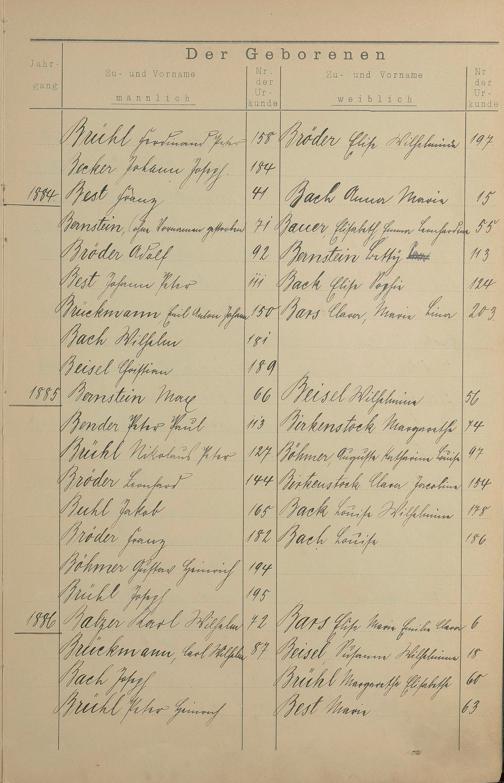 Der Geborenen
Jahr-gang Zu- und Vorname männlich Nr. der Ur-kunde Zu- und Vorname weiblich Nr. der Ur-kunde
Brühl Ferdinand Peter 158 Bröder Elise Wilhelmine 197
Becker Johann Joseph 184
1884 Best Franz 41 Bach Anna Maria 15
Bernstein, (ohne Vornamen gestorben 71 Bauer Elisabeth Emma Leonhardine 55
Bröder Adolf 92 Bernstein Betty 113
Best Johann Peter 111 Back Elise Sophie 124
Brückmann Emil Anton Johann 150 Bars Clara, Maria Lina 203
Bach Wilhelm 181
Beisel Christian 189
1885 Bernstein Max 66 Beisel Wilhelmine 56
Bender Peter Paul 113 Birkenstock Margarethe 74
Brühl Nikolaus Peter 127 Böhmer, Auguste Katharina Louise 97
Bröder Leonhard 144 Birkenstock Clara, Jacobine 154
Buhl Jakob 165 Back Louise Wilhelmine 178
Bröder Franz 182 Bach Louise 186
Böhmer Gustav Heinrich 194
Brühl Joseph 195
1886 Balzer Karl Wilhelm 72 Bars Elise Maria Emilie Clara 6
Brückmann, Carl Wilhelm 87 Beisel, Susanna Wilhelmine 18
Bach Joseph Brühl Margarethe Elisabethe 60
Brühl Peter Heinrich Best Maria 63